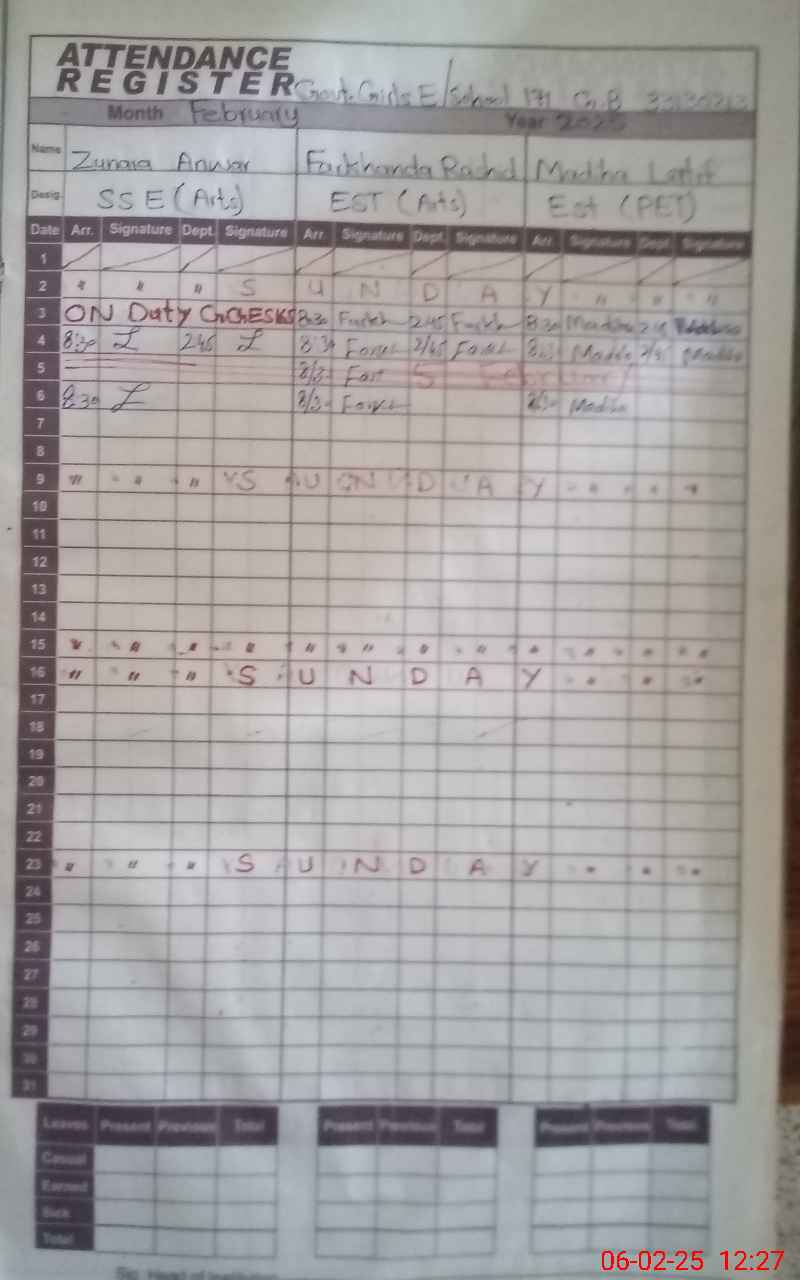 ATTENDANCE
REGISTER Govt. Girls E/School 171 G.B
Month February Year 2025
Name Zunaira Anwar Farkhanda Rashid Madiha Latif
Desig. SSE (Arts) EST (Arts) Est (PET)
Date Arr. Signature Dept. Signature Arr. Signature Dept. Signature Arr. Signature Dept. Signature
1
2 " " " S U N D A Y " " "
3 ON Duty 8:30 2:45 8:30
4 8:30 2:45 8:30 2/45
5 5 February
6 8:30
7
8
9 " " " S U N D A Y " " "
10
11
12
13
14
15 " " " " " " " " " " " "
16 " " " S U N D A Y " " "
17
18
19
20
21
22
23 " " " S U N D A Y " " "
24
25
26
27
28
29
30
31
Leaves Present Previous Total Present Previous Total Present Previous Total
Casual
Earned
Sick
Total
Sig. Head of
06-02-25 12:27